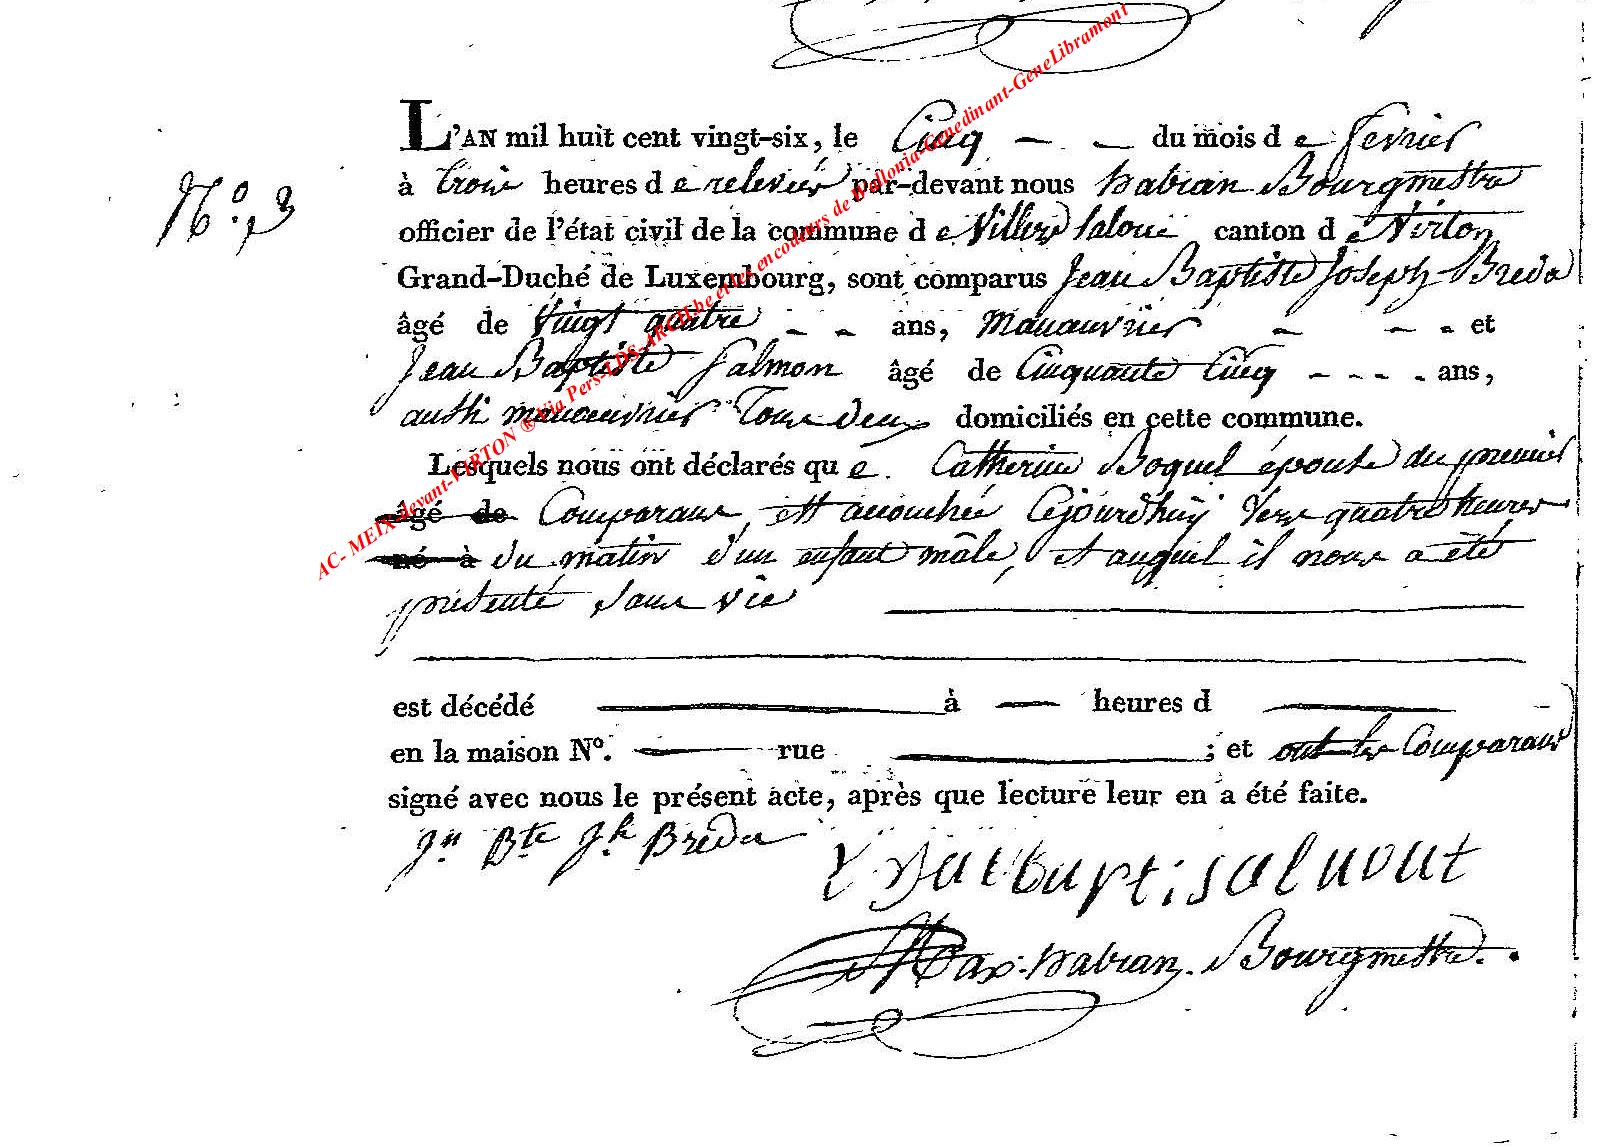 L'AN mil huit cent vingt-six, le Cinq du mois d e fevrier
N.º 3
à trois heures d e relevée par-devant nous habran Bourgmestre
officier de l'état civil de la commune d e Villers laloue canton d e Virton
Grand-Duché de Luxembourg, sont comparus Jean Baptiste Joseph Breda
âgé de Vingt quatre ans, Manœuvrier et
Jean Baptiste Salmon âgé de Cinquante Cinq ans,
aussi manœuvrier Tous deux domiciliés en cette commune.
Lesquels nous ont déclarés qu e Catherine Boquel épouse du premier
âgé de Comparans, est acouchée Cejourdhuy Vers quatre heures
né à du matin d'un enfant mâle, et auquel il nous a été
présenté sans vie
est décédé à heures d
en la maison Nº. rue ; et ont les Comparans
signé avec nous le présent acte, après que lecture leur en a été faite.
Jn Bte Jh Breda
salmont
Max. habran. Bourgmestre.
AC- MEIX-devant-VIRTON ® Via Pers-LDS-ARCH.be et les encodeurs de Wallonia-Genedinant-GeneLibramont